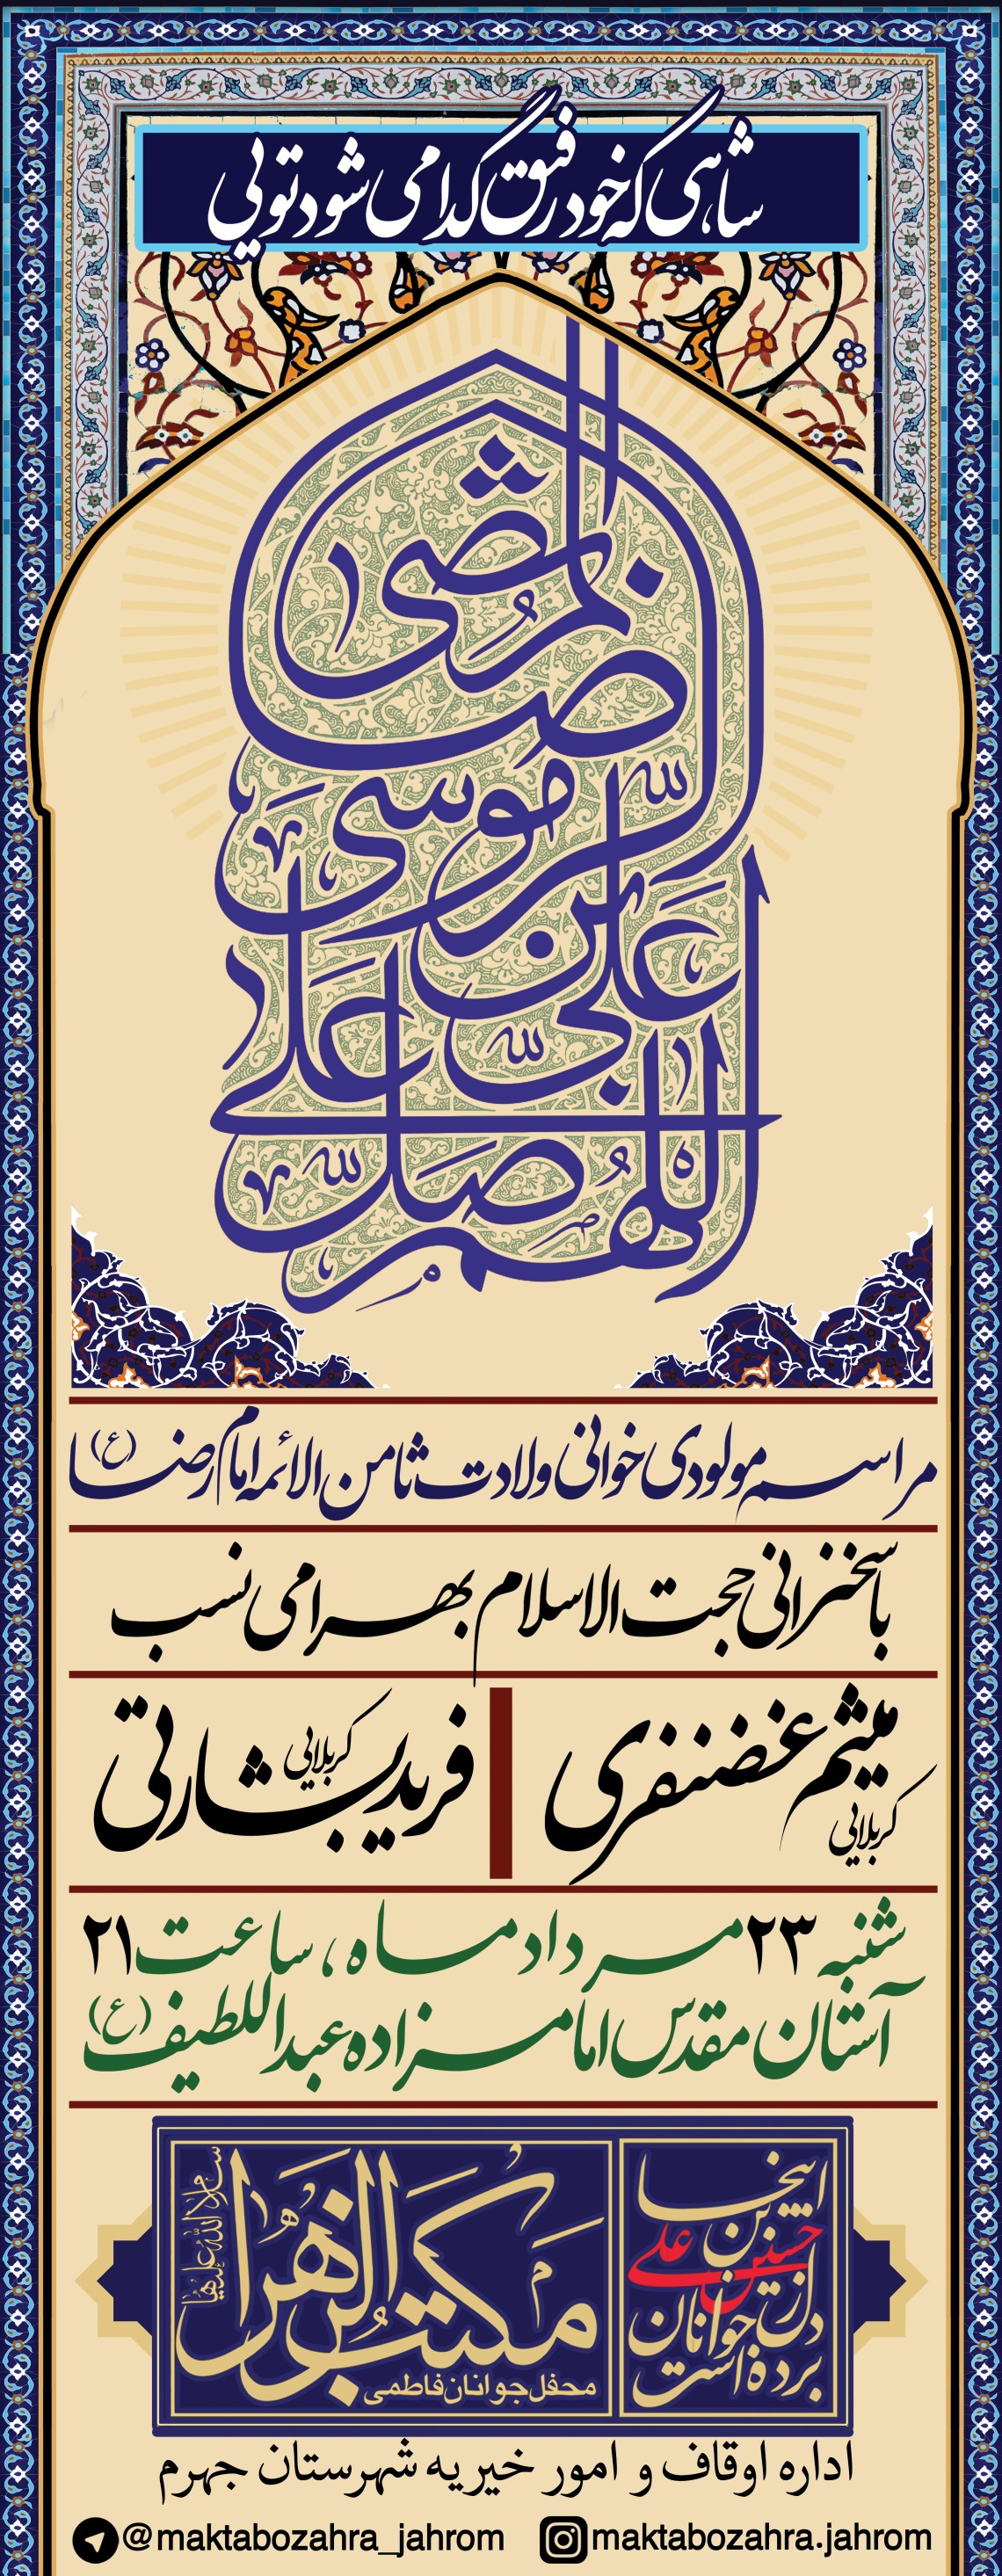 شاهی که خود رفیق گدا می شود تویی
اللهم صل علی
علی بن موسی
الرضا المرتضی
مراسم مولودی خوانی ولادت ثامن الائمه امام رضا (ع)
با سخنرانی حجت الاسلام بهرامی نسب
کربلایی میثم غضنفری
کربلایی فرید بشارتی
شنبه ۲۳ مرداد ماه ، ساعت ۲۱
آستان مقدس امامزاده عبداللطیف (ع)
اینجا
حسین بن علی
دل از
جوانان
برده است
مکتب الزهرا
سلام الله علیها
محفل جوانان فاطمی
اداره اوقاف و امور خیریه شهرستان جهرم
@maktabozahra_jahrom
maktabozahra.jahrom